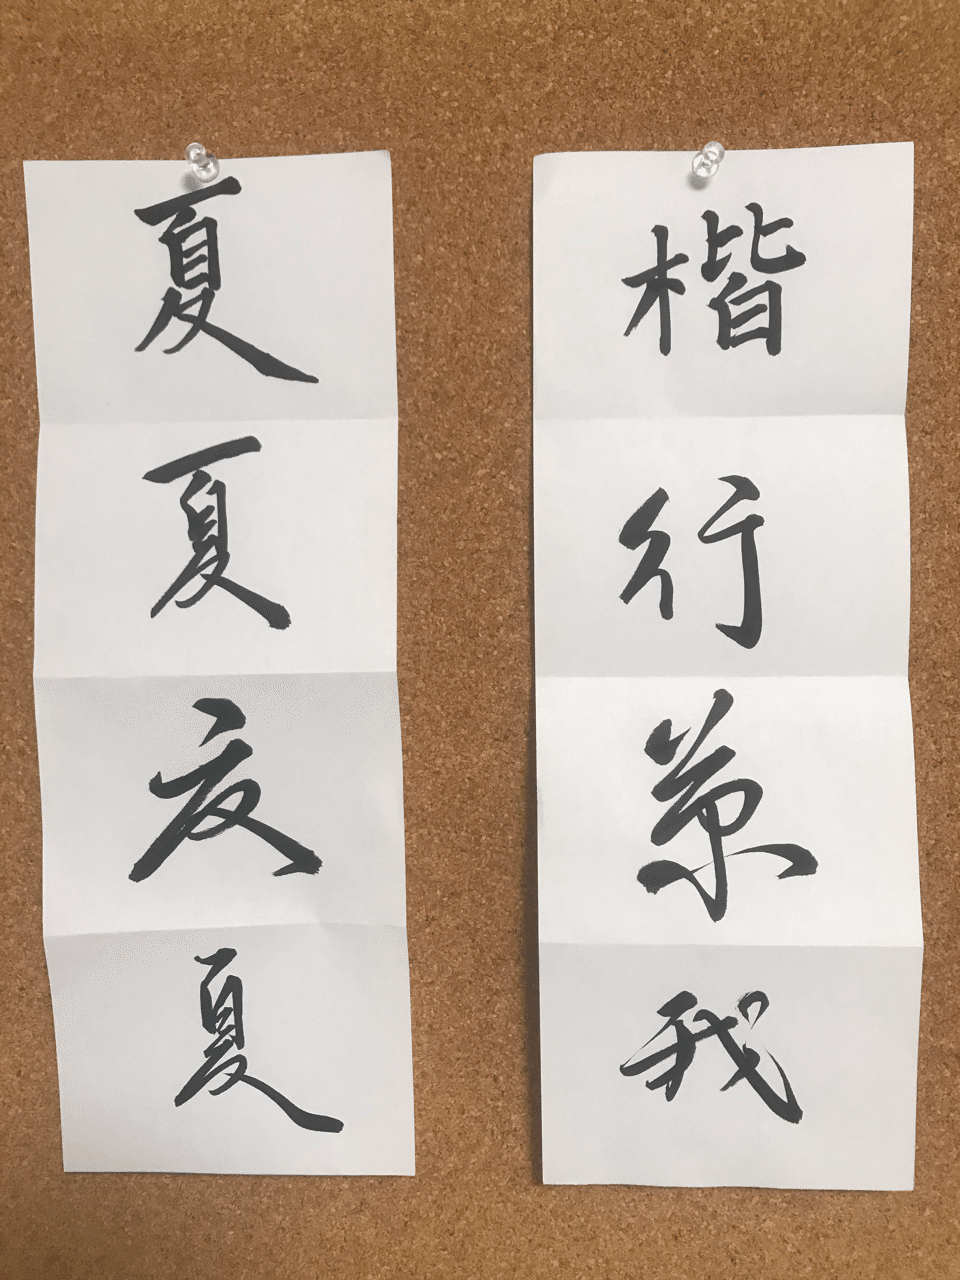 楷行草我
夏夏夏夏